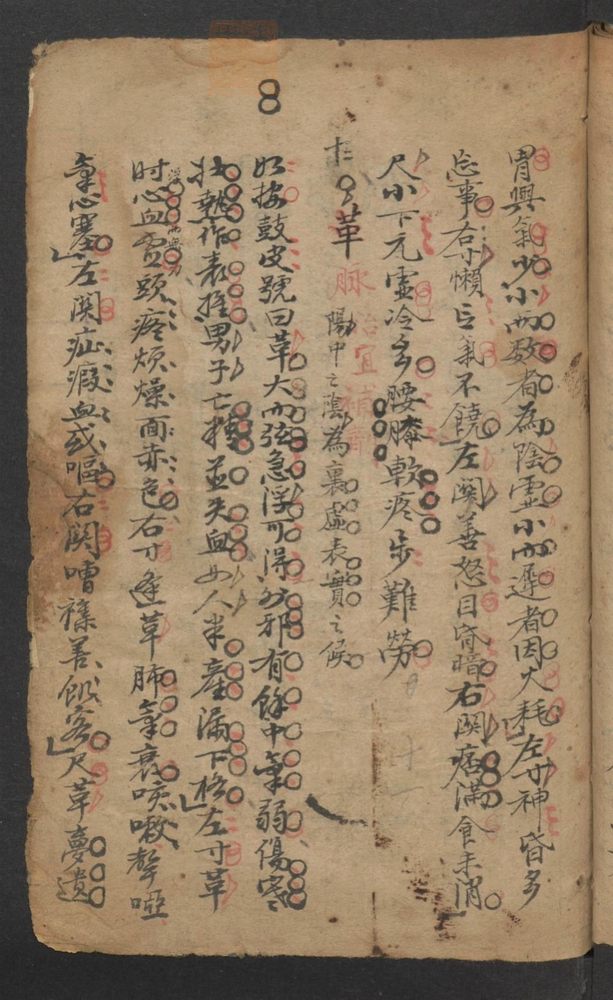 胃與氣少小而数者為陰虛小而遲者因火耗左寸神昏多
忘事右寸懶言氣不饒左関善怒目昏暗右関痞滿食未消
尺小下元虛冷主腰膝軟疼步難勞
革脉 陽中之陰為裏虛表實之候
如按鼓皮號曰革大而弦急浮可得外邪有餘中氣弱傷寒
壮熱作表推男子亡精並失血女人半產漏下格左寸革
時心血虛頭疼煩燥面赤色右寸逢革肺氣衰咳嗽聲啞
氣心塞左関疝瘕血或嘔右関嘈雜善飢客尺革夢遺
8